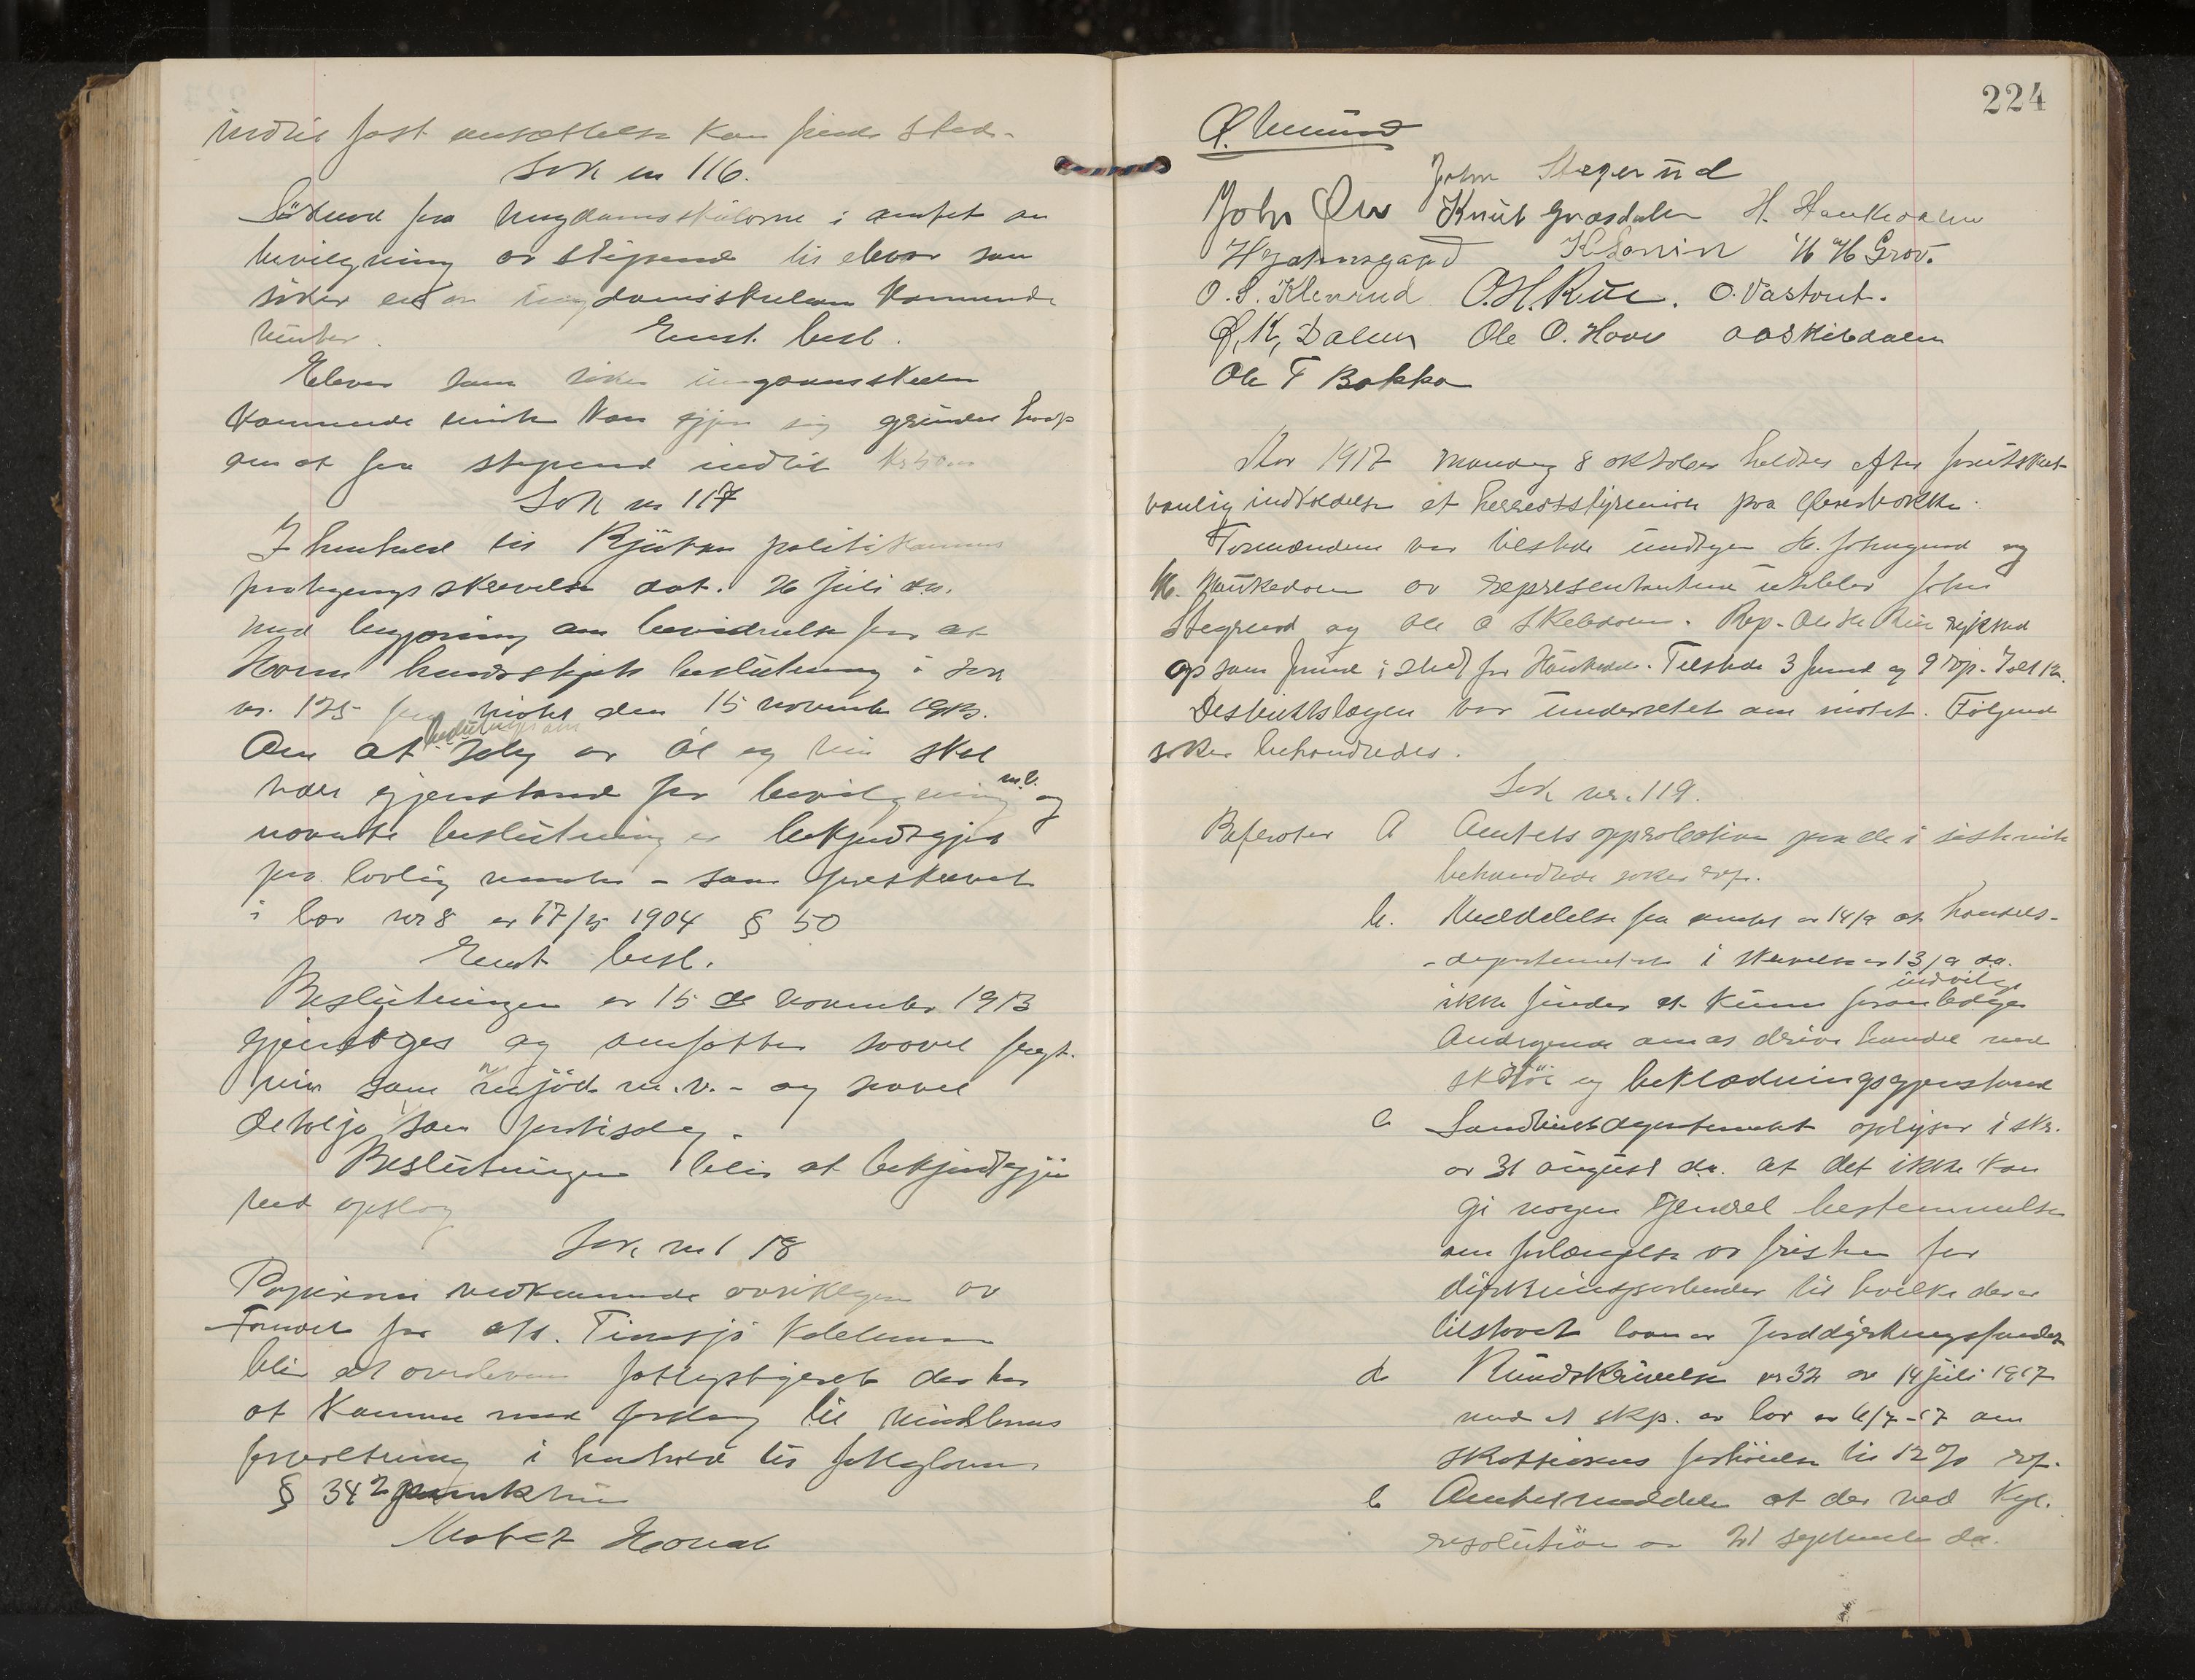 indtil fast ansættelse kan finde sted.
Sak nr 116.
Søknad fra ungdomsskolerne i amtet om
bevilgning av stipend til elever som
søker en av ungdomsskolene kommende
vinter. Enst. besl.
Elever som søker ungdomsskolen
kommende vinter kan gjøre sig grundet haap
om at faa stipend indtil
Sak nr 117
I henhold til Rjukan politikammers
paategningsskrivelse dat. 26 juli d.a.
med begjæring om bevidnelse for at
herredsstyrets beslutning i sak
nr. 125 fra møtet den 15 november 1913.
Om at salg av øl og vin skal
være gjenstand for bevilgning m.v. og
nævnte beslutning er bekjendtgjort
paa lovlig maate - som foreskrevet
i lov nr 8 av 17/5 1904 § 50
Enst besl.
Beslutningen av 15 de november 1913
gjentages og omfatter saavel frugt-
vin som mjød m.v. - og saavel
detalj som partisalg.
Beslutningen blir at bekjendtgjøre
ved opslag
Sak nr 118
Papirerne vedkommende avviklingen av
Formuen for
blir at oversende fattigstyret der har
at komme med forslag til midlernes
forvaltning i henhold til fattiglovens
§ 34 2 punktum
Møtet hævet
224
John Stegerud
John Øen Knut Grasdalen H. Haukedalen
H Johnsgaard K Sønin H H Grov.
O. S. Klevrud O. H. Rue. O. Vastvet.
Ø, K, Dalen Ole O. Hove O O Skibdalen
Ole T Bakka
Aar 1917 mandag 8 oktober holdtes efter forutgaaende
vanlig indkaldelse et herredsstyremøte paa Øverbøkka.
Formændene var tilstede undtagen H. Johnsgaard og
H. Haukedalen av repræsentantene uteblev John
Stegerud og Ole O Skibdalen. Rep. Ole H Rue rykked
op som formd i sted for Haukedal. Tilstede 3 formd og 9 rep. Ialt 12.
Distriktslægen var underrettet om møtet. Følgende
saker behandledes.
Sak nr. 119.
Referater A Amtets approbation paa de i siste møte
behandlede saker ref.
b. Meddelelse fra amtet av 14/9 at handels-
departementet i skrivelse av 13/9 d.a.
ikke finder at kunne indvilge
Andragende om at drive handel med
skotøi og beklædningsgjenstand
c Landbruksdepartementet oplyser i skr.
av 31 august d.a. at det ikke kan
gi nogen generel bestemmelse
om forlængelse av fristen for
dyrkningsarbeider til hvilke der er
tilstaaet laan av Jorddyrkningsfondet
d Rundskrivelse nr 32 av 14 juli 1917
med et ekp. av lov av 6/7-17 om
skatteørens forhøielse til 12% ref.
e Amtet meddeler at der ved Kgl.
resolution av 21 september d.a.